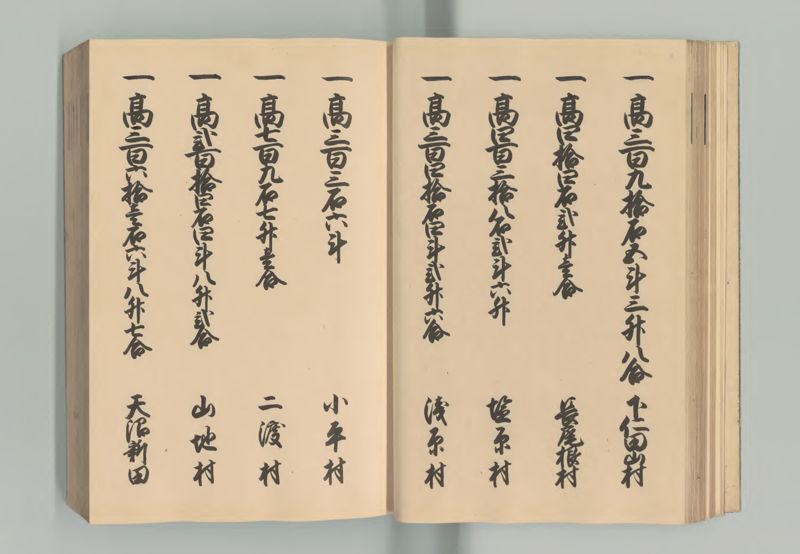 一高三百九拾石五斗三升八合 下仁田山村
一高四拾四石弐升壱合 長尾根村
一高四百三拾八石弐斗六升 塩原村
一高三百四拾石四斗弐升六合 浅原村
一高三百三石六斗 小平村
一高七百九石七升壱合 二渡村
一高弐百拾四石四斗八升弐合 山地村
一高三百六拾壱石六斗八升七合 天沼新田